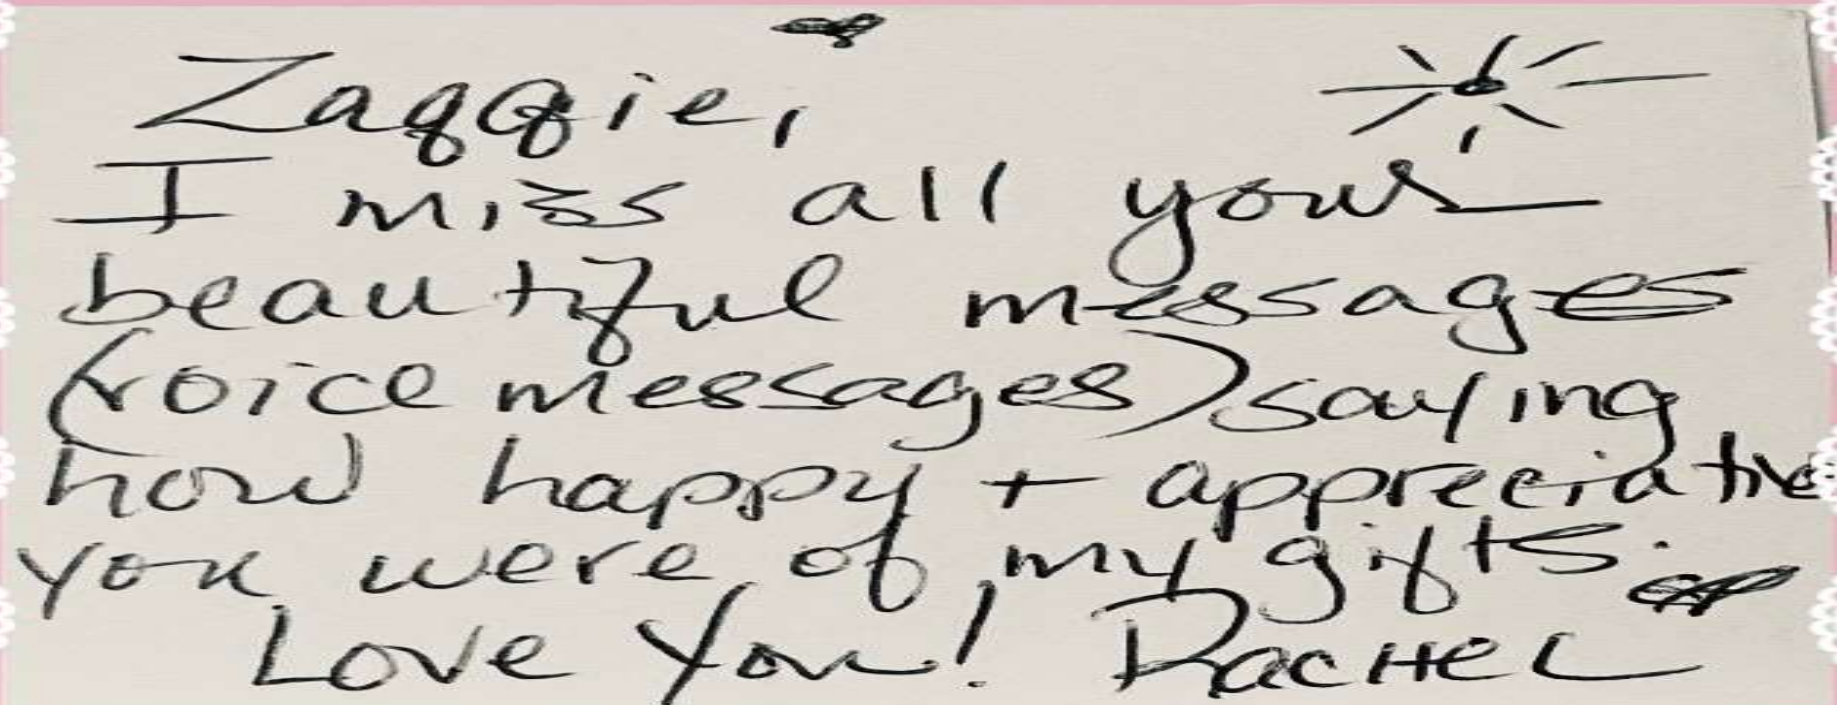 Zaqqie,
I miss all your
beautiful messages
(voice messages) saying
how happy + appreciative
you were of my gifts.
Love You! Rachel